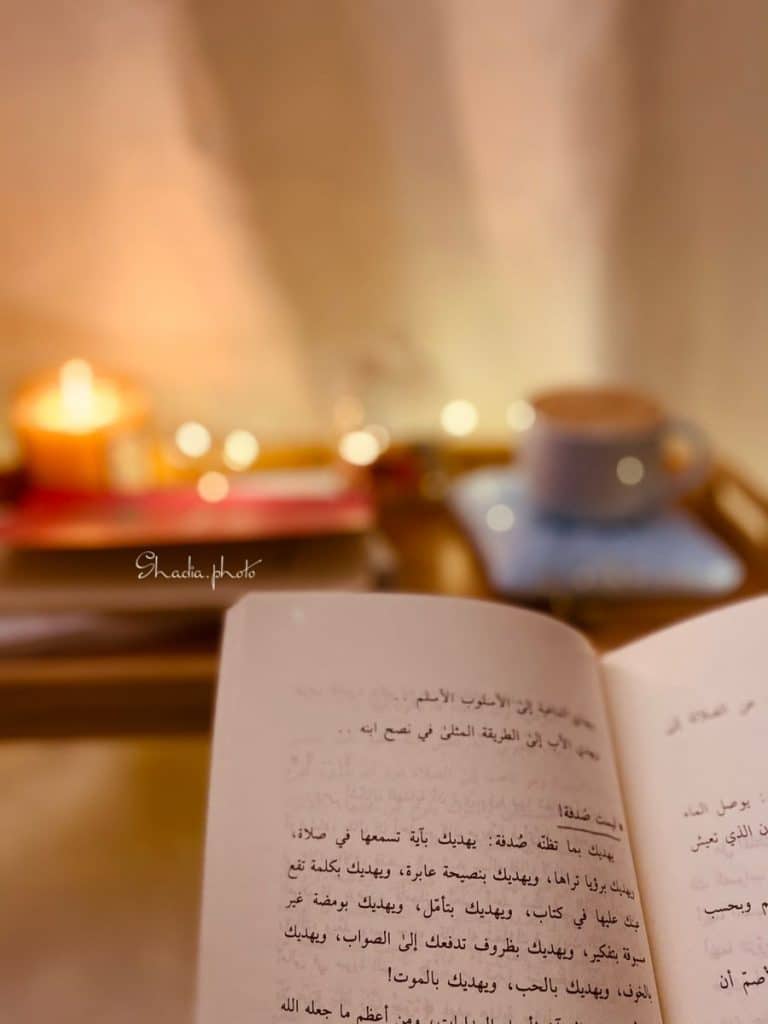 Shadia.photo
ويهدي الداعية إلىٰ الأسلوب الأسلم ..
ويهدي الأب إلىٰ الطريقة المثلىٰ في نصح ابنه ..
* ليست صُدفة!
يهديك بما تظنّه صُدفة: يهديك بآية تسمعها في صلاة،
ويهديك برؤيا تراها، ويهديك بنصيحة عابرة، ويهديك بكلمة تقع
عينك عليها في كتاب، ويهديك بتأمّل، ويهديك بومضة غير
مسبوقة بتفكير، ويهديك بظروف تدفعك إلىٰ الصواب، ويهديك
بالخوف، ويهديك بالحب، ويهديك بالموت!
ومن أعظم ما جعله الله
من الصلاة إلى
: يوصل الماء
الذي تعيش
وبحسب
أصمّ أن